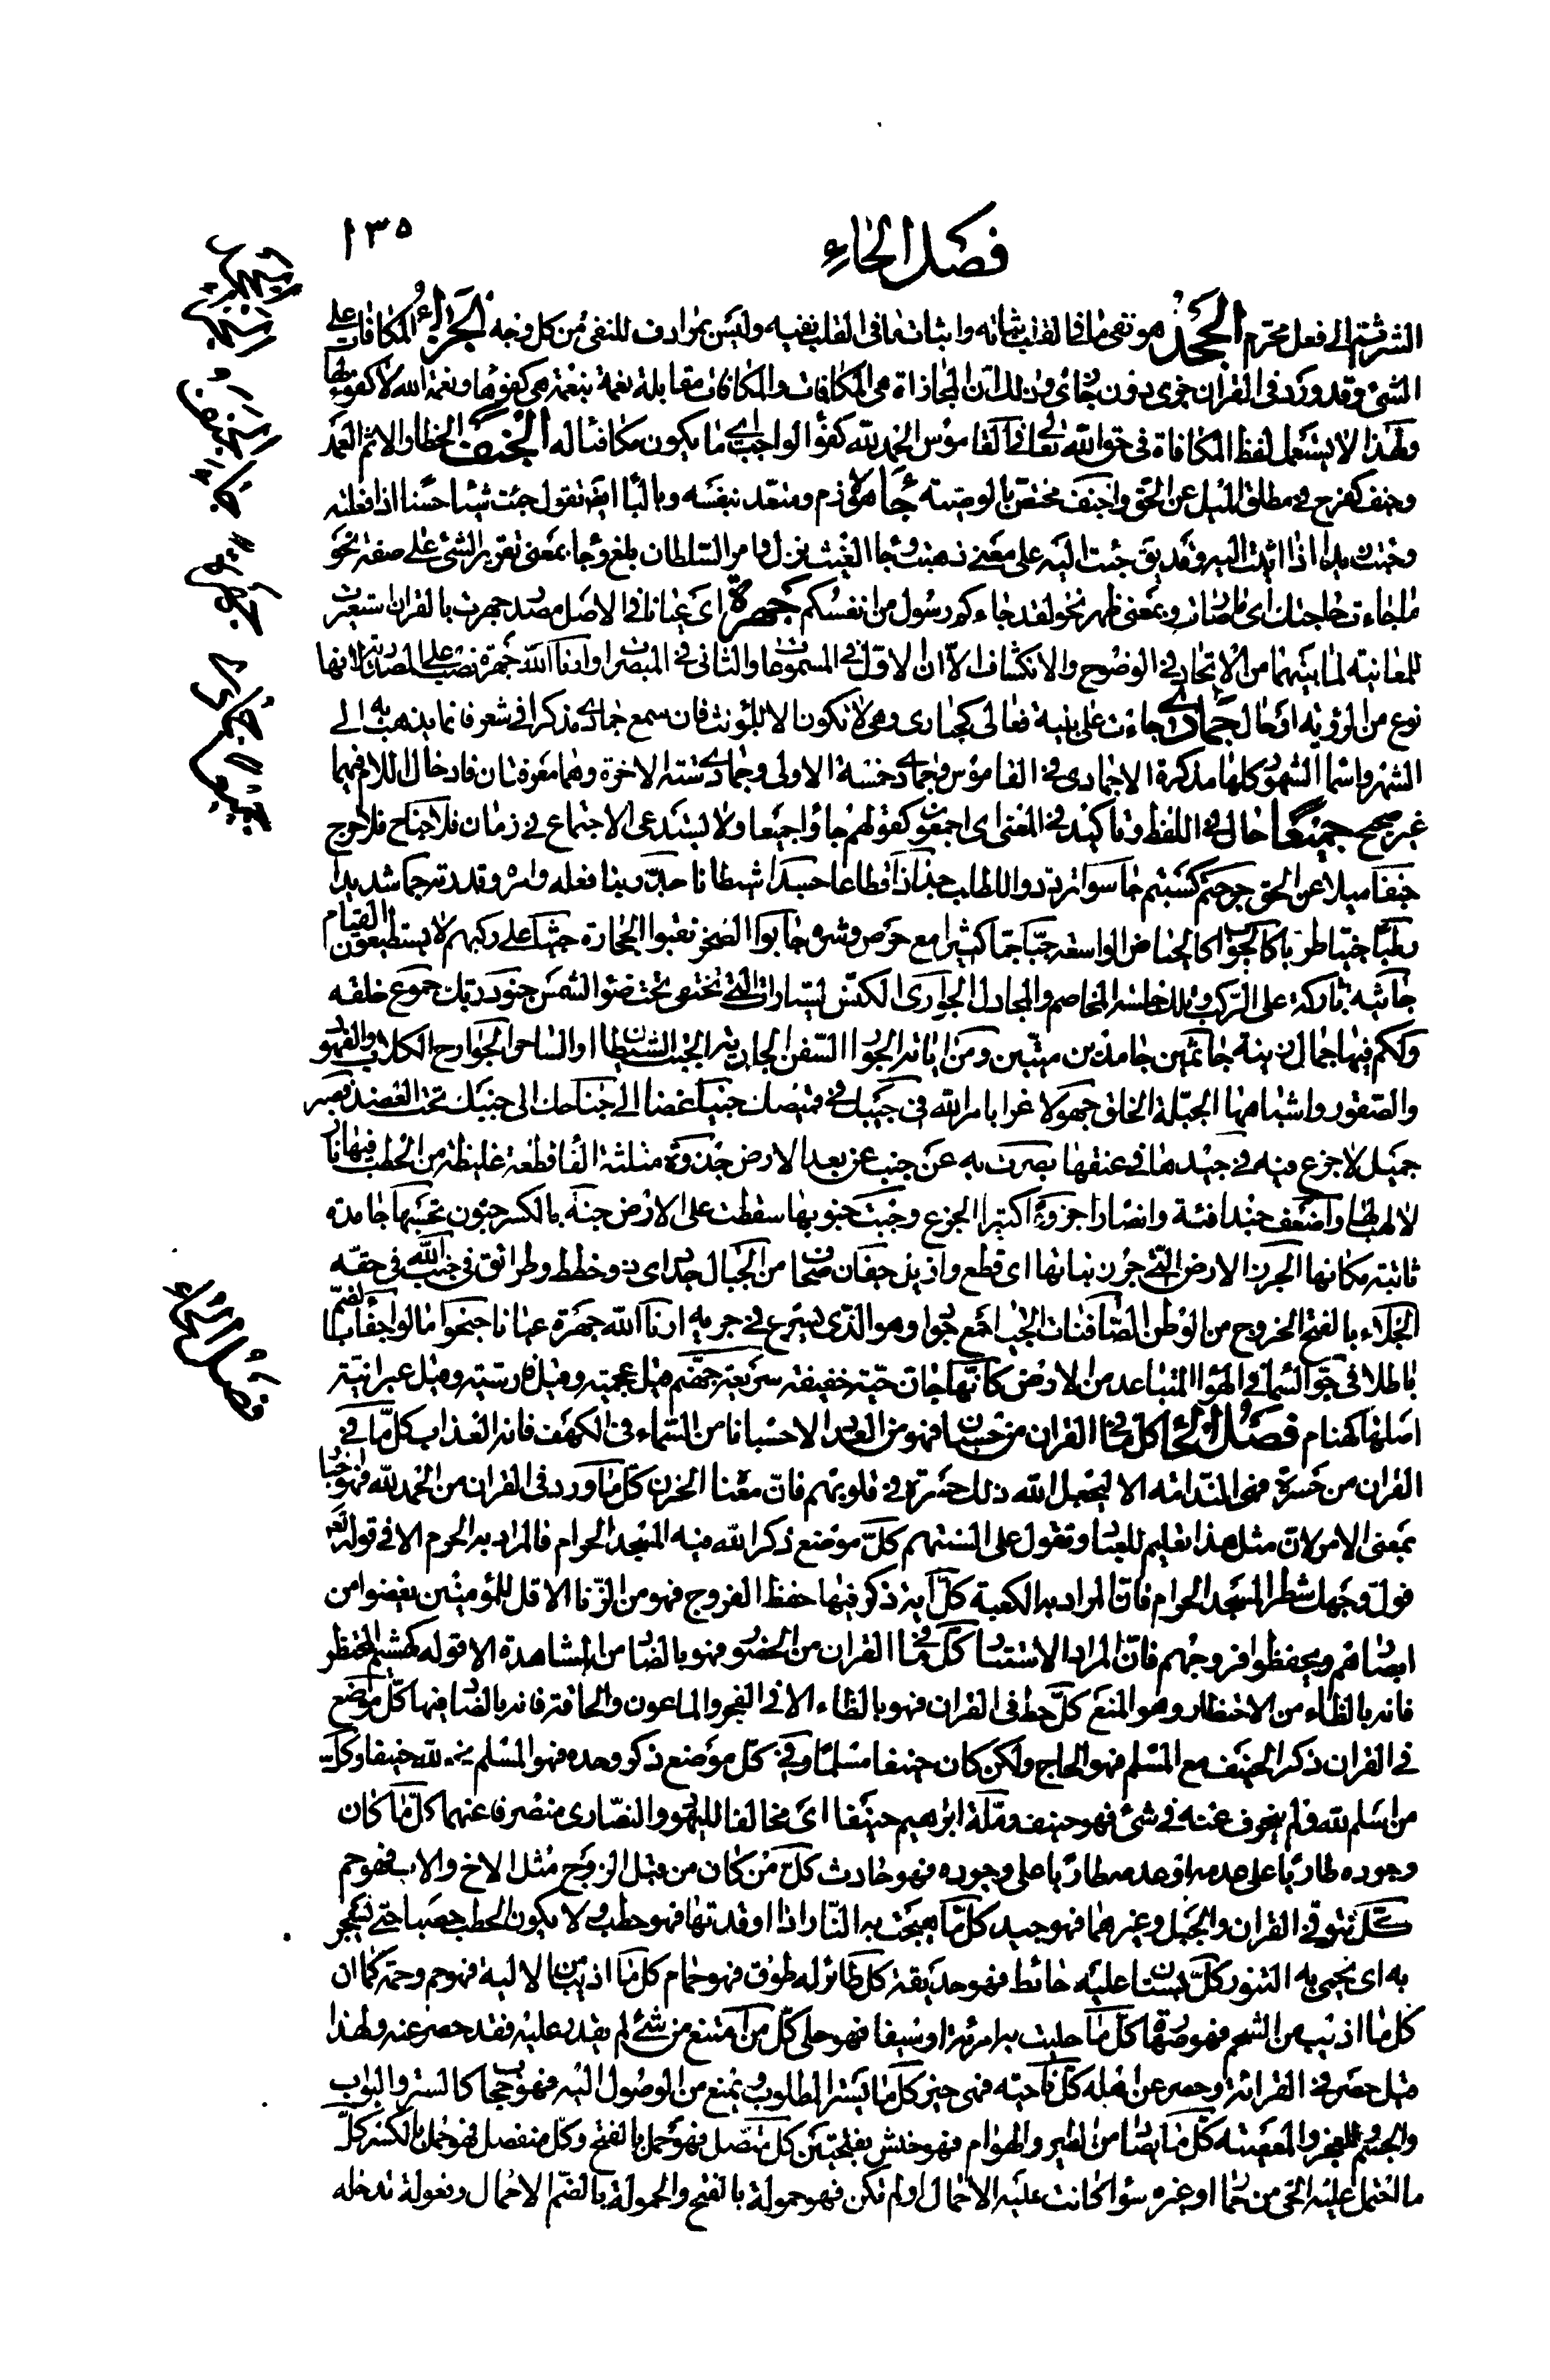 فصل الحاء
١٣٥
الشر قسم الى فعل محرم الجحد هو نفى ما فى القلب ثباته واثبات ما فى القلب نفيه وليس بمرادف للنفى من كل وجه الجزاء المكافات على
الشئ وقد ورد فى القران جزى دون جازى وذلك لان المجازاة هى المكافات والمكافات مقابلة نعمة بنعمة هى كفوها ونعمة الله لا كفو لها
ولهذا لا يستعمل لفظ المكافاة فى حق الله تعالى فى القاموس الحمد لله كفؤ الواجب اى ما يكون مكافئا له الجنف الخطا والاثم العمد
وجنف كفرح فى مطلق الميل عن الحق واجنف مختص بالوصية جاء هو لازم ومتعد بنفسه وبالباء ايضا تقول جئت شيئا حسنا اذا فعلته
وجئت زيدا اذا اتيت اليه وقد يق جئت اليه على معنى ذهبت وجا الغيث نزل وامر السلطان بلغ وجا بمعنى تقرير الشئ على صفة نحو
ما جاءت حاجتك اى ما صارت وبمعنى ظهر نحو لقد جاءكم رسول من انفسكم جهرة اى عيانا فى الاصل مصدر جهرت بالقران استعيرت
للمعاينة لما بينهما من الاتحاد فى الوضوح والانكشاف الا ان الاول فى المسموعات والثانى فى المبصرات وارنا الله جهرة نصب على المصدر لانها
نوع من الرؤية او حال جمادى جاءت على بنية فعالى كحبارى وهى لا تكون الا للمؤنث فان سمع جمادى مذكرا فى شعر فانما يذهب به الى
الشهر واسماء الشهور كلها مذكرة الا جمادى فى القاموس وجمادى خمسة الاولى وجمادى ستة الاخرة وهما معرفتان فادخال اللام فيهما
غير صحيح جميعا حال فى اللفظ وتاكيد فى المعنى اى اجمعون كقولهم جاؤا جميعا ولا يستدعى الاجتماع فى زمان فلا جناح فلا حرج
جنفا ميلا عن الحق جرحتم كسبتم جاسوا ترددوا للطلب جذاذا قطاعا جسدا شيطانا جد ربنا فعله وامره وقدرته جما شديدا
رطبا جنيا طريا كالجواب كالحياض الواسعة حبا جما كثيرا مع حرص وشره جابوا الصخر نقبوا الحجارة جثيا على ركبهم لا يستطيعون القيام
جاثية باركة على الركب وتلك جلسة المخاصم والمجادل الجوارى الكنس السيارات التى تختفى تحت ضوء الشمس جنود ربك جموع خلقه
ولكم فيها جمال زينة جاثمين جامدين ميتين ومن اياته الجوار السفن الجارية الجبت الشيطان او الساحر الجوارح الكلاب والفهود
والصقور واشباهها الجبلة الخلق جهولا غرا بامر الله فى جيبك فى قميصك جنيا غضا الى جناحك الى جنبك تحت العضد فصبر
جميل لا جزع فيه فى جيدها فى عنقها بصرت به عن جنب عن بعد الارض جذوة مثلثة الفا قطعة غليظة من الحطب فيها نار
لا لهب لها واضعف جندا فئة وانصارا جزوعا كثير الجزع وجبت جنوبها سقطت على الارض جنة بالكسر جنون تحسبها جامدة
ثابتة مكانها الجرز الارض التى جرز نباتها اى قطع وازيل جفان صحان من الجبال جدد اى ذو خطط وطرائق فى جنب الله فى حقه
الجلاء بالفتح الخروج من الوطن الصافنات الجياد جمع جواد وهو الذى يسرع فى جريه ارنا الله جهرة عيانا جنحوا مالوا جفاء بالضم
باطلا فى جو السماء فى الهواء المتباعد من الارض كانها جان حية خفيفة سريعة جهنم قيل عجمية وقيل فارسية وقيل عبرانية
اصلها كهنام فصل الحا كل ما فى القران من حسبان فهو من العدد الا حسبانا من السماء فى الكهف فانه العذاب كل ما فى
القران من حسرة فهى الندامة الا ليجعل الله ذلك حسرة فى قلوبهم فان معناه الحزن كل ما ورد فى القران من الحمد لله فهو اخبار
بمعنى الامر لان مثل هذا تعليم للعباد وتقول على السنتهم كل موضع ذكر الله فيه المسجد الحرام فالمراد به الحرم الا فى قوله تعه
فول وجهك شطر المسجد الحرام فان المراد به الكعبة كل اية ذكر فيها حفظ الفروج فهو من الزنا الا قل للمؤمنين يغضوا من
ابصارهم ويحفظوا فروجهم فان المراد الاستتار كل ما فى القران من الحضور فهو بالضاد من المشاهدة الا قوله كهشيم المحتظر
فانه بالظاء من الاحتظار وهو المنع كل حظ فى القران فهو بالظاء الا فى الفجر والماعون والحاقة فانه بالضاد فيها كل موضع
فى القران ذكر الحنيف مع المسلم فهو الحاج ولكن كان حنيفا مسلما وفى كل موضع ذكر وحده فهو المسلم نحو لله حنيفا وكل
من اسلم لله ولم ينحرف عنه فى شئ فهو حنيف وملة ابرهيم حنيفا اى مخالفا لليهود والنصارى منصرفا عنهما كل ما كان
وجوده طاريا على عدمه او عدمه طاريا على وجوده فهو حادث كل من كان من قبل الزوج مثل الاخ والاب فهو حم
كل نتو فى القران والجبل وغيرهما فهو حيد كل ما هيجت به النار اذا اوقدتها فهو حطب ولا يكون الحطب حصبا حتى يسجر
به اى يحمى به التنور كل بستان عليه حائط فهو حديقة كل طائر له طوق فهو حمام كل ما اذيب من الالية فهو حم وحمة كما ان
كل ما اذيب من الشحم فهو صهارة كل ما حليت به امرئة او سيفا فهو حلى كل من امتنع من شئ لم يقدر عليه فقد حصر عنه ولهذا
قيل حصر فى القرائة وحصر عن اهله كل ناحية فهى حيز كل ما يستر المطلوب ويمنع من الوصول اليه فهو حجاب كالستر والبواب
والجسم والعجز والمعصية كل ما يصاد من الطير والهوام فهو حنش بفتحتين كل متصل فهو حمل بالفتح وكل منفصل فهو حمل بالكسر كل
ما احتمل عليه الحى من حمار او غيره سواء كانت عليه الاحمال او لم تكن فهو حمولة بالفتح والحمولة بالضم الاحمال وفعولة تدخله
فصل الحاء